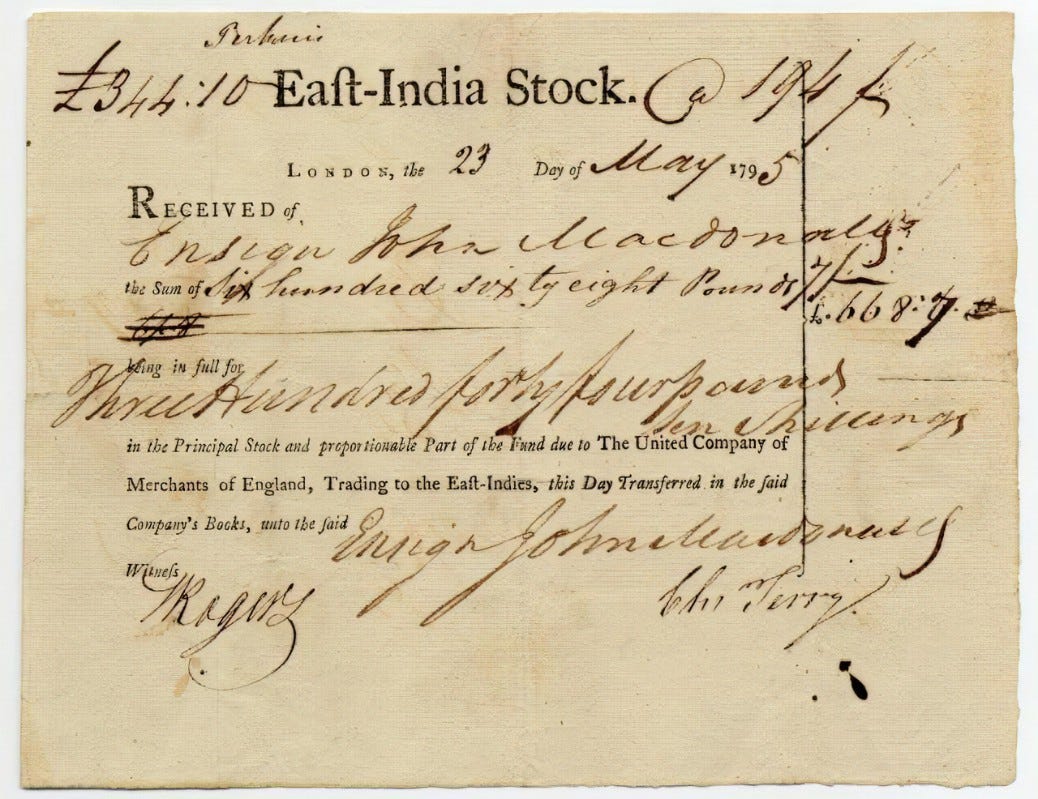 £344:10 Eaſt-India Stock. @ 194
LONDON, the 23 Day of May 1795
RECEIVED of
Ensign John Macdonald
the Sum of Six hundred sixty eight Pounds 7/ £.668:7.
being in full for
Three Hundred forty four pounds
ten Shillings
in the Principal Stock and proportionable Part of the Fund due to The United Company of
Merchants of England, Trading to the Eaſt-Indies, this Day Transferred in the ſaid
Company's Books, unto the ſaid Ensign John Macdonald
Witneſs
Rogers Chs Terry